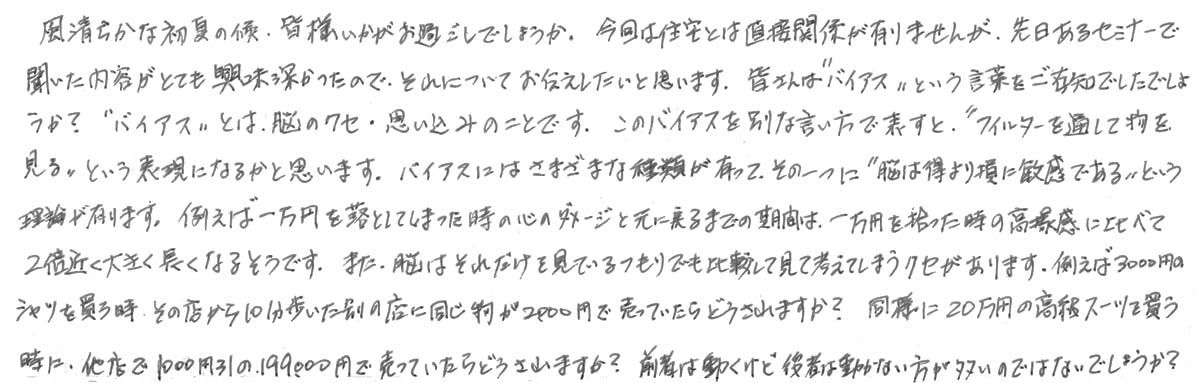 風清らかな初夏の候、皆様いかがお過ごしでしょうか。今回は住宅とは直接関係が有りませんが、先日あるセミナーで
聞いた内容がとても興味深かったので、それについてお伝えしたいと思います。皆さんは"バイアス"という言葉をご存知でしたでしょ
うか？"バイアス"とは、脳のクセ・思い込みのことです。このバイアスを別な言い方で表すと、"フィルターを通して物を
見る"という表現になるかと思います。バイアスにはさまざまな種類が有って、その一つに"脳は得より損に敏感である"という
理論が有ります。例えば一万円を落としてしまった時の心のダメージと元に戻るまでの期間は、一万円を拾った時の高揚感に比べて
2倍近く大きく長くなるそうです。また、脳はそれだけを見ているつもりでも比較して見て考えてしまうクセがあります。例えば3000円の
シャツを買う時、その店から10分歩いた別の店に同じ物が2000円で売っていたらどうされますか？同様に20万円の高級スーツを買う
時に、他店で1000円引の199,000円で売っていたらどうされますか？前者は動くけど後者は動かない方が多いのではないでしょうか？